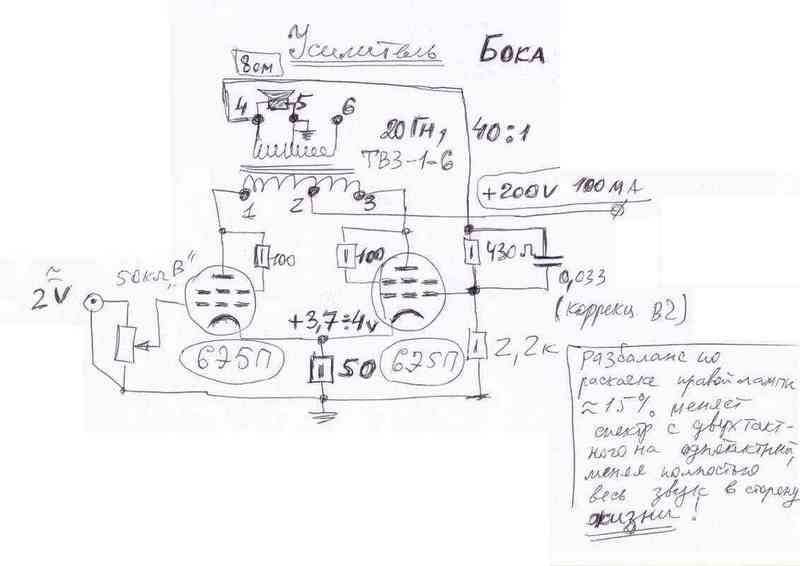 Усилитель Бока
8 ом
4 5 6
20 Гн, 40:1
ТВЗ-1-6
+200V 100 МА
1 2 3
100 100
430 Ω
0,033
(коррекц ВЧ)
50кл „В"
≈
2V
+3,7÷4v
6Ж5П 6Ж5П
50
2,2к
Разбаланс по
раскачке правой лампы
≈15% меняет
спектр с двухтакт-
ного на однотактный,
меняя полностью
весь звук в сторону
жизни!